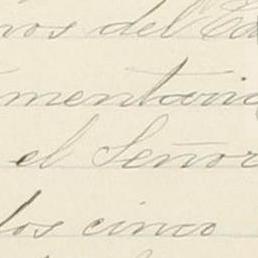 nos del
mentario
el Señor
los cinco